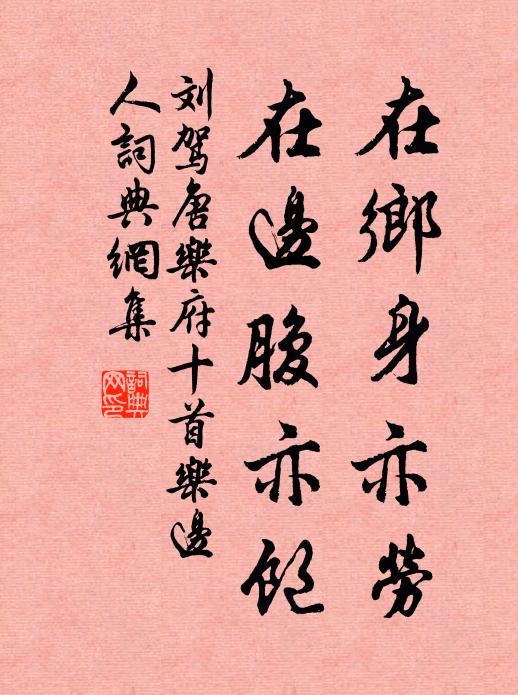 在鄉身亦勞
在邊腹亦飽
刘駕唐樂府十首樂邊
人詞典網集
詞典
网印